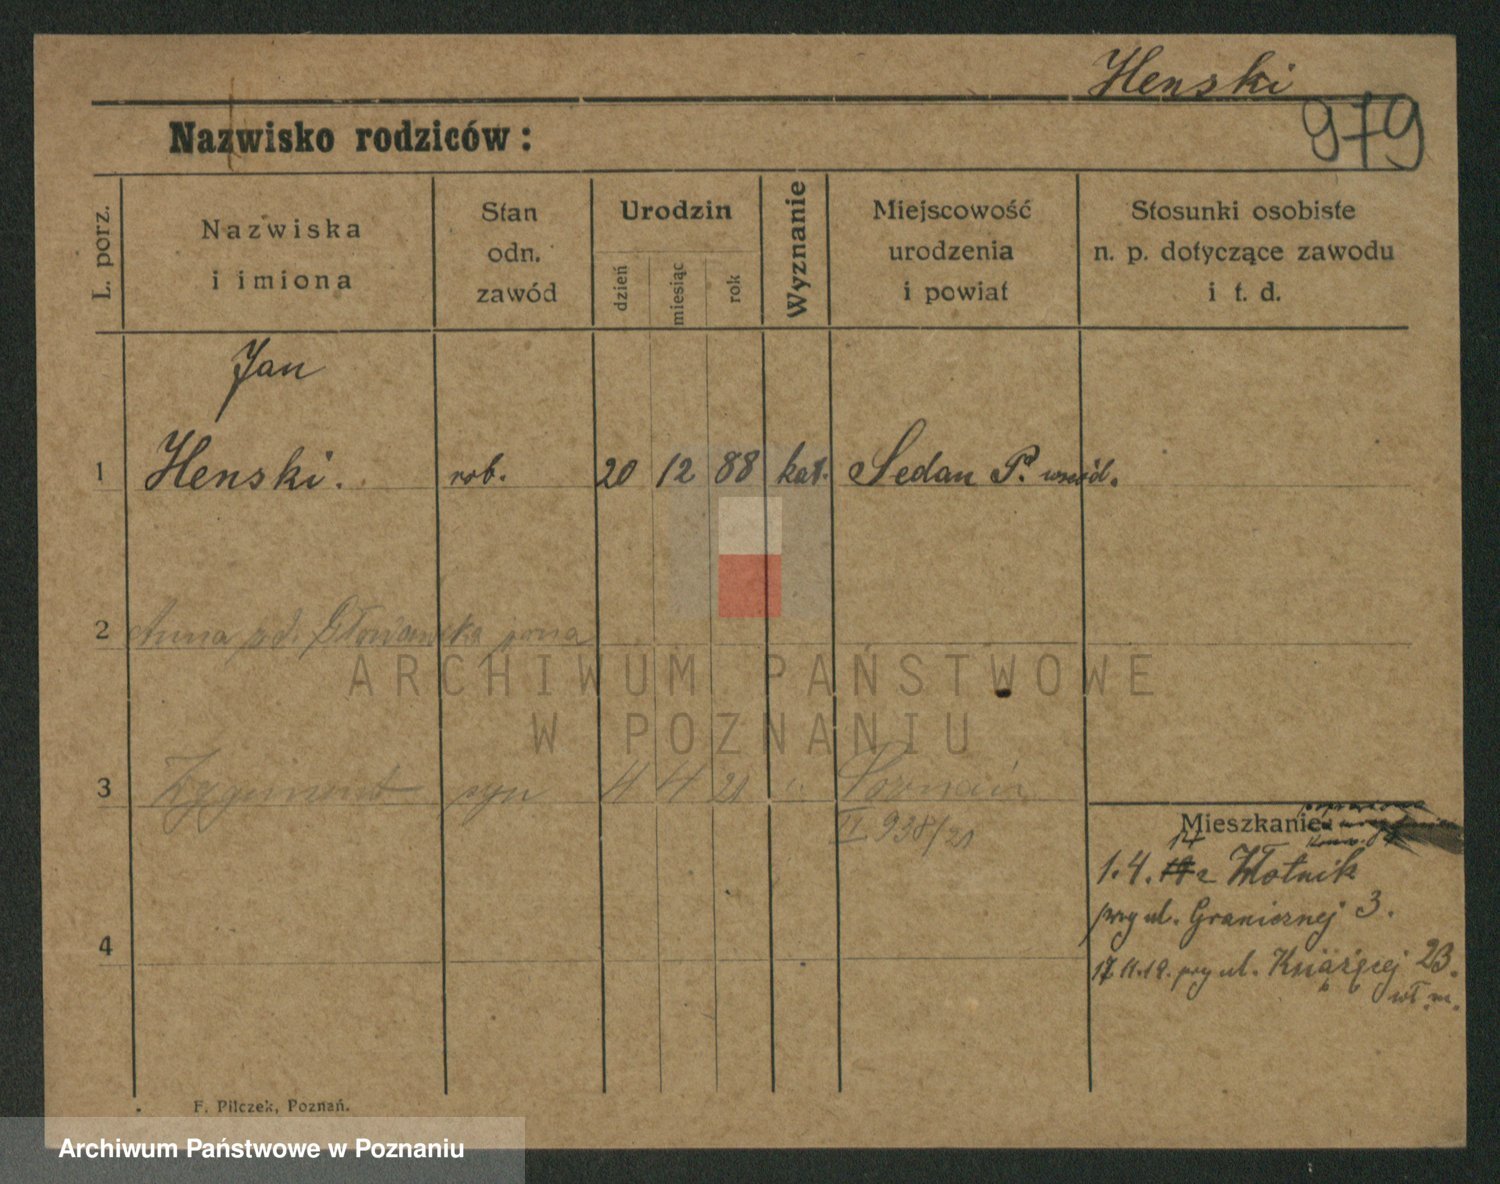 Henski
979
Nazwisko rodziców:
L. porz.
Nazwiska
i imiona
Stan
odn.
zawód
Urodzin
dzień
miesiąc
rok
Wyznanie
Miejscowość
urodzenia
i powiat
Stosunki osobiste
n. p. dotyczące zawodu
i t. d.
Jan
1 Henski. rob. 20 12 88 kat. Sedan P.
2 Anna żona
ARCHIWUM PAŃSTWOWE
W POZNANIU
3 Zygmunt syn 4 21 Poznań
II 938/21
Mieszkanie
14
1.4. Włotnik
przy ul. Granicznej 3.
4
17.11.19. przy ul. Książęcej 23.
wł. m.
F. Pilczek, Poznań.
Archiwum Państwowe w Poznaniu